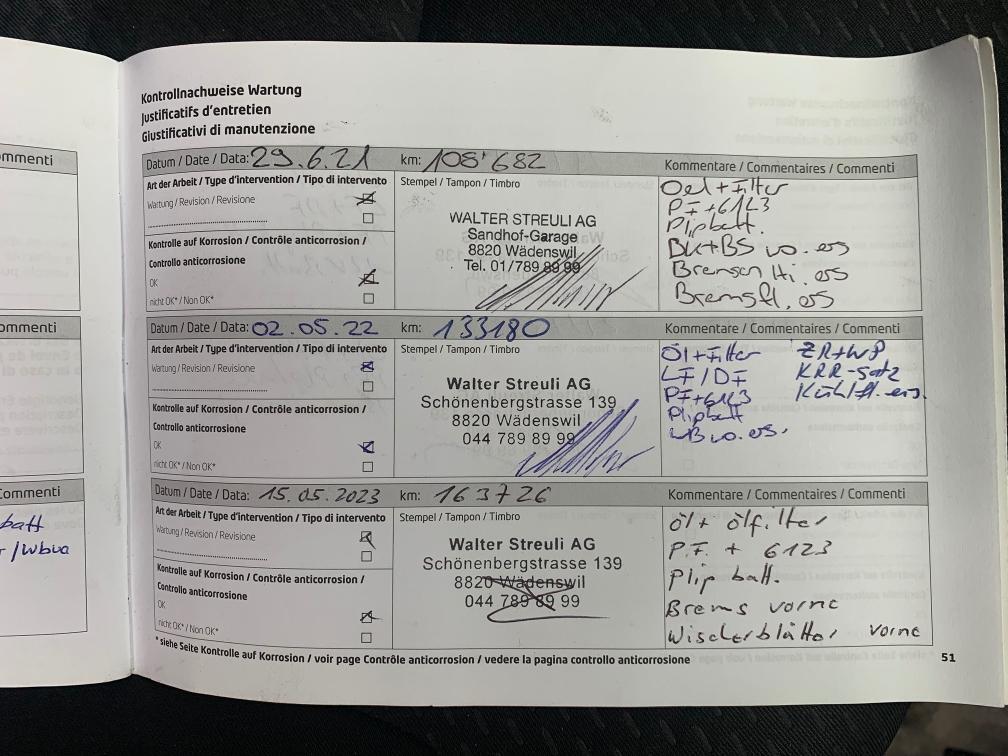 mmenti
ommenti
Commenti
batt
r/Wbva
Kontrollnachweise Wartung
Justificatifs d'entretien
Giustificativi di manutenzione
Datum / Date / Data: 29.6.21 km: 108'682 Kommentare / Commentaires / Commenti
Art der Arbeit / Type d'intervention / Tipo di intervento
Wartung / Revision / Revisione
Kontrolle auf Korrosion / Contrôle anticorrosion /
Controllo anticorrosione
OK
nicht OK* / Non OK*
Stempel / Tampon / Timbro
WALTER STREULI AG
Sandhof-Garage
8820 Wädenswil
Tel. 01/789 89 99
Oel + Filter
PF + 6123
Plipbatt.
BK+BS vo. ers
Bremsen Hi. ers
Bremsfl. ers
Datum / Date / Data: 02.05.22 km: 133180 Kommentare / Commentaires / Commenti
Art der Arbeit / Type d'intervention / Tipo di intervento
Wartung / Revision / Revisione
Kontrolle auf Korrosion / Contrôle anticorrosion /
Controllo anticorrosione
OK
nicht OK* / Non OK*
Stempel / Tampon / Timbro
Walter Streuli AG
Schönenbergstrasse 139
8820 Wädenswil
044 789 89 99
Öl+Filter ZR+WP
LF/DF KRR-Satz
PF+6123 Kühlfl. ers.
Plipbatt
WB vo. ers.
Datum / Date / Data: 15.05.2023 km: 163726 Kommentare / Commentaires / Commenti
Art der Arbeit / Type d'intervention / Tipo di intervento
Wartung / Revision / Revisione
Kontrolle auf Korrosion / Contrôle anticorrosion /
Controllo anticorrosione
OK
nicht OK* / Non OK*
Stempel / Tampon / Timbro
Walter Streuli AG
Schönenbergstrasse 139
8820 Wädenswil
044 789 89 99
Öl + Ölfilter
P.F. + 6123
Plip batt.
Brems vorne
Wischerblätter vorne
* siehe Seite Kontrolle auf Korrosion / voir page Contrôle anticorrosion / vedere la pagina controllo anticorrosione
51